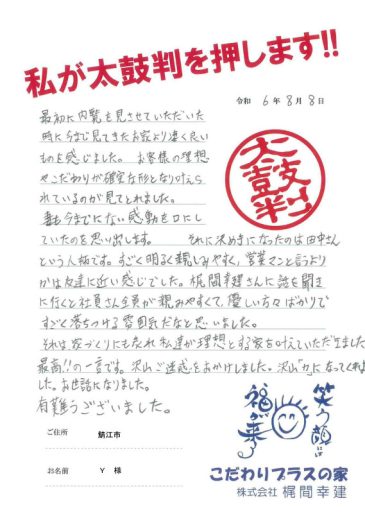 私が太鼓判を押します!!
令和 6年 8月 8日
最初に内覧も見させていただいた
時に今まで見てきたお家より凄く良い
ものを感じました。お客様の理想
やこだわりが確実な形となり叶えら
れているのが見てとれました。
妻も今までにない感動を口にし
ていたのを思い出します。 それに決めきになったのは田中さん
という人柄です。すごく明るく親しみやすく、営業マンと言うより
かは友達に近い感じでした。梶間幸建さんに話を聞き
に行くと社員さん全員が親みやすくて、優しい方々ばかりで
すごく落ちつける雰囲気だなと思いました。
それは家づくりにもなれ私達が理想とする家を叶えていただきました
最高!!の一言です。沢山ご迷惑をおかけしました。沢山「力」になってくれま
した。お世話になりました。
有難うございました。
太鼓判
ご住所 鯖江市
お名前 Y 様
笑う顔には
福が来る
こだわりプラスの家
株式会社 梶間幸建